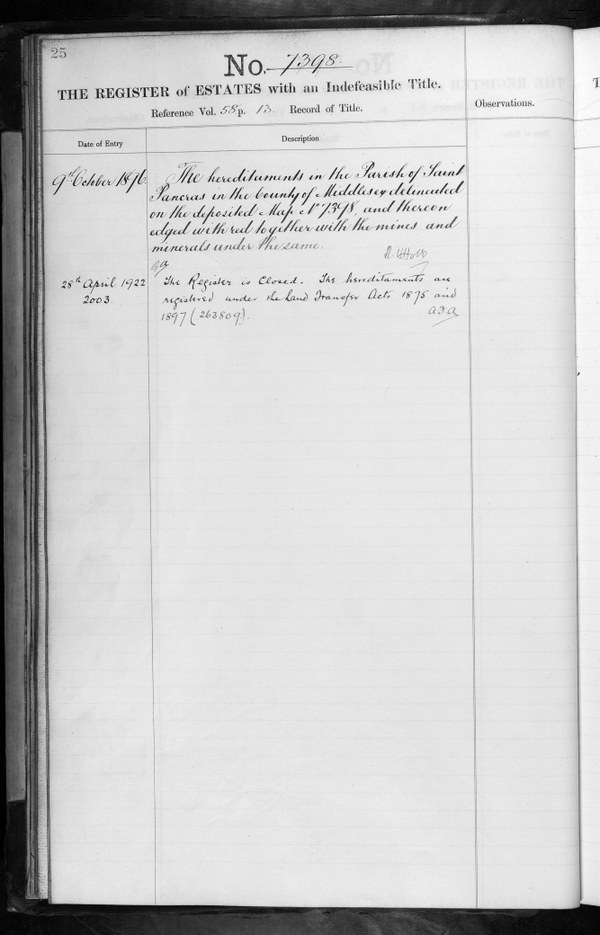 25
No. 7398.
THE REGISTER of ESTATES with an Indefeasible Title.
Reference Vol. 58 p. 13. Record of Title.
Observations.
Date of Entry
Description
9th October 1896.
The hereditaments in the Parish of Saint
Pancras in the County of Middlesex delineated
on the deposited Map No 7398, and thereon
edged with red together with the mines and
minerals under the same.
28th April 1922
2003.
The Register is Closed. The hereditaments are
registered under the Land Transfer Acts 1875 and
1897 (263809).